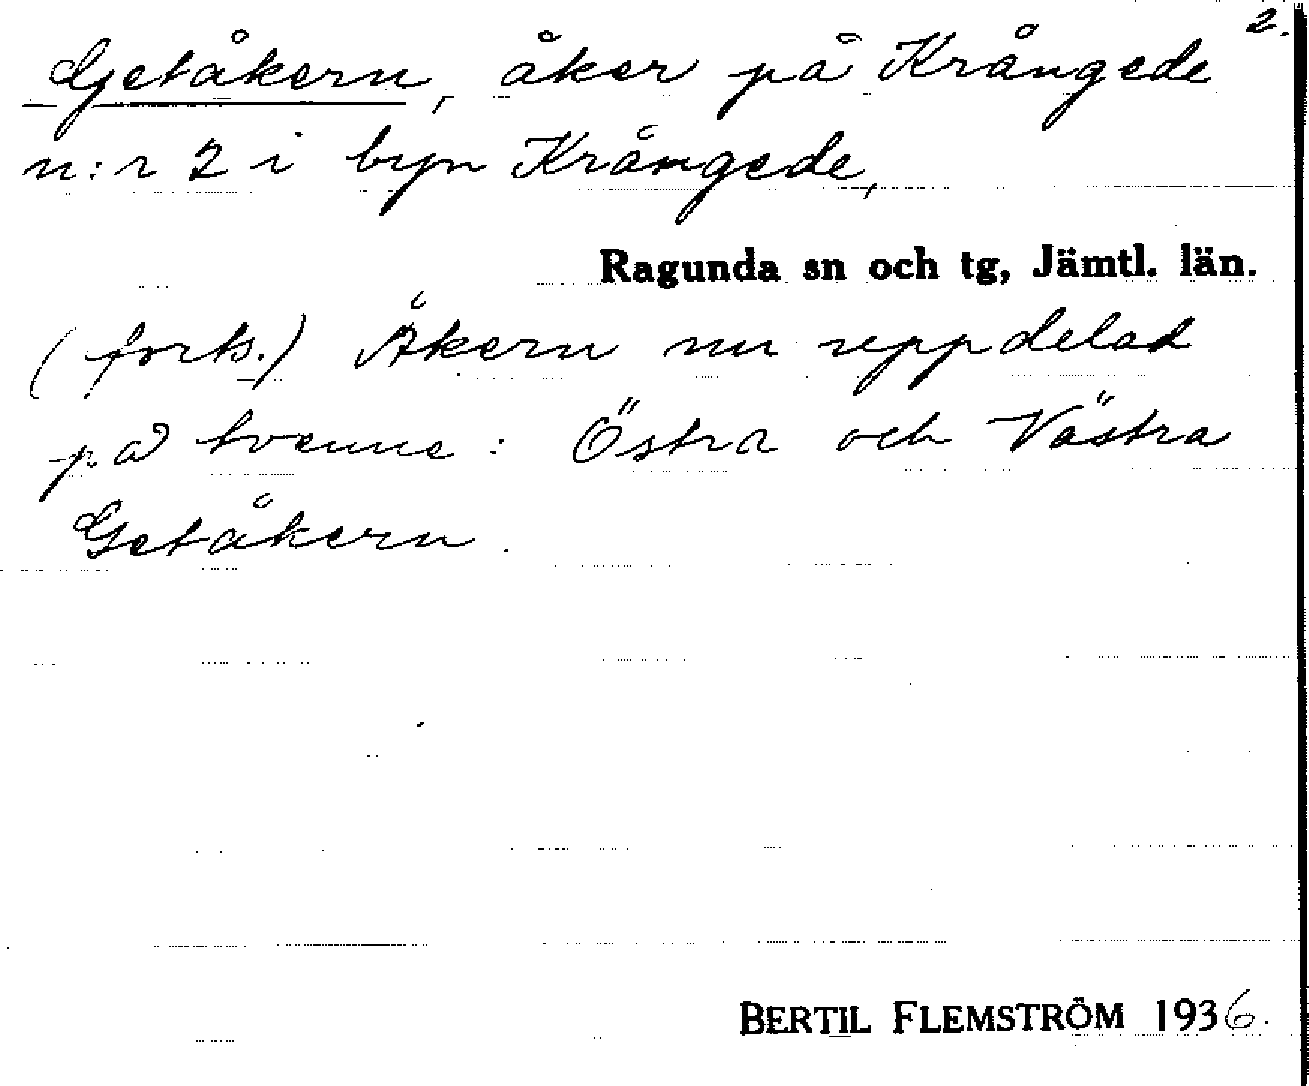 2.
Getåkern, åker på Krångede
n:r 2 i byn Krångede,
Ragunda sn och tg, Jämtl. län.
(forts.) Åkern nu uppdelad
på tvenne: Östra och Västra
Getåkern.
BERTIL FLEMSTRÖM 1936.